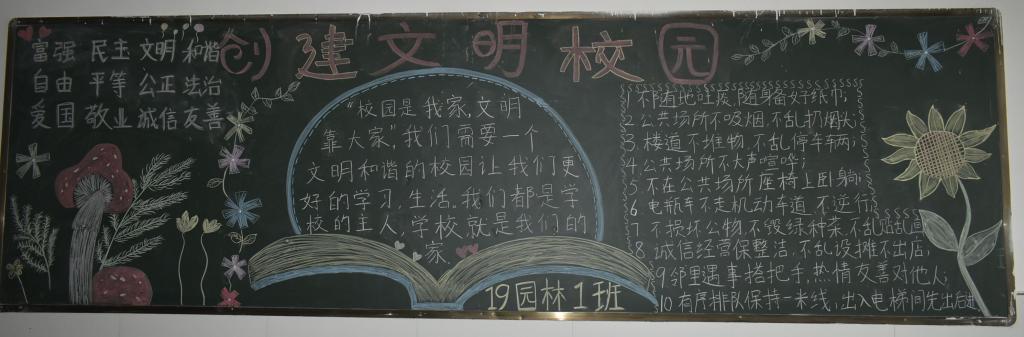 创建文明校园
富强 民主 文明 和谐
自由 平等 公正 法治
爱国 敬业 诚信 友善
“校园是我家,文明
靠大家”,我们需要一个
文明和谐的校园让我们更
好的学习,生活。我们都是学
校的主人,学校就是我们的
家
19园林1班
1 不随地吐痰,随身备好纸巾;
2 公共场所不吸烟,不乱扔烟头;
3 楼道不堆物,不乱停车辆;
4 公共场所不大声喧哗;
5 不在公共场所座椅上卧躺;
6 电瓶车不走机动车道,不逆行;
7 不损坏公物,不毁绿种菜,不乱贴乱画
8 诚信经营保整洁,不乱设摊不出店;
9 邻里遇事搭把手,热情友善对他人;
10 有序排队保持一米线,出入电梯间先出后进